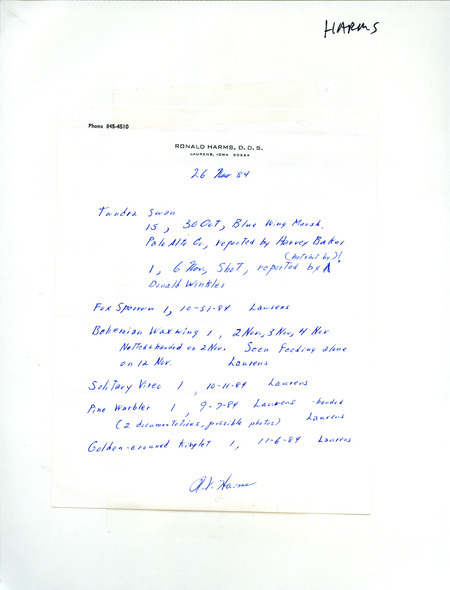 HARMS
Phone 845-4510
RONALD HARMS, D.D.S.
LAURENS, IOWA 50554
26 Nov 84
Tundra Swan
15, 30 Oct, Blue Wing Marsh.
Palo Alto Co, reported by Harvey Baker
(not shot by)!
1, 6 Nov, Shot, reported by ∧
Donald Winkler
Fox Sparrow 1, 10-31-84 Laurens
Bohemian Waxwing 1, 2 Nov, 3 Nov, 4 Nov
Netted & banded on 2 Nov. Seen Feeding alone
on 12 Nov. Laurens
Solitary Vireo 1, 10-11-84 Laurens
Pine Warbler 1, 9-7-84 Laurens - banded
(2 documentations, possible photos) Laurens
Golden-crowned Kinglet 1, 11-6-84 Laurens
Harms